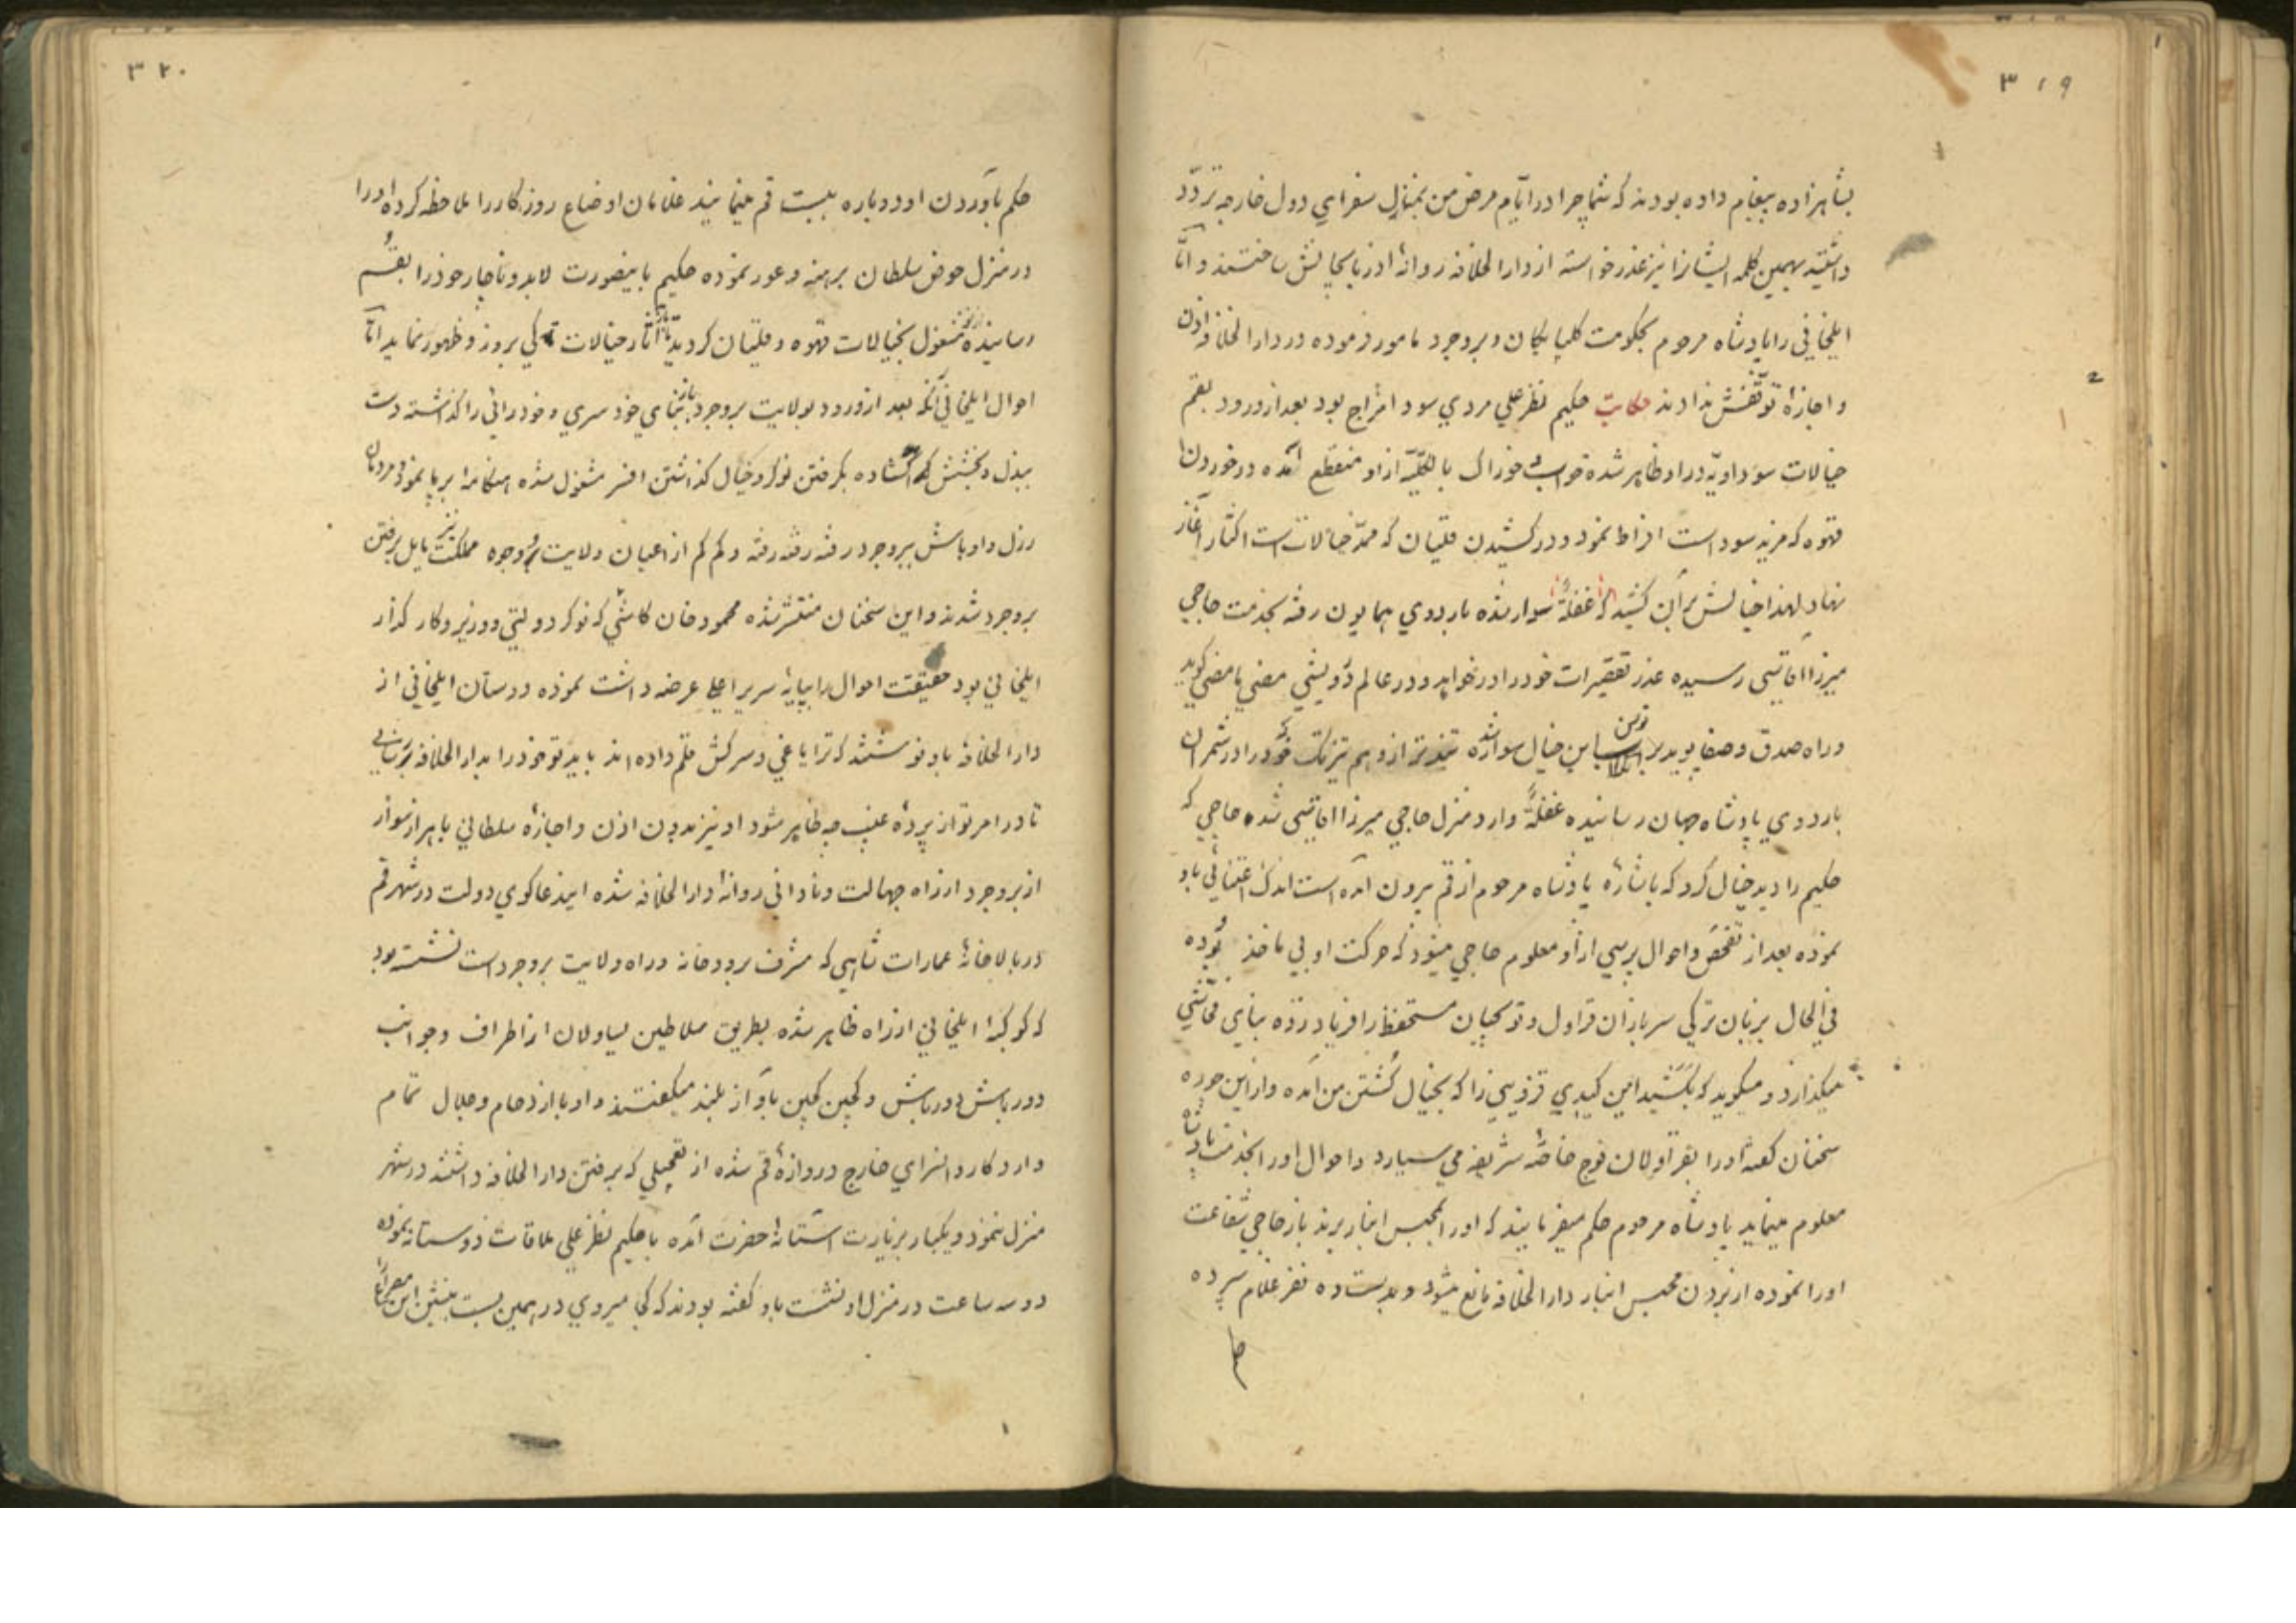 ۳۱۹
بشاهزاده پیغام داده بودند که شما چرا در ایّام مرض من بمنازل سفرای دول خارجه تردّد
داشتید بهمین کلمه ایشانرا نیز عذر خواسته از دارالخلافه روانهٔ آذربایجانش ساختند و امّا
ایلخانی را پادشاه مرحوم بحکومت گلپایگان و بروجرد مامور فرموده در دارالخلافه اذن
و اجازهٔ توقّفش ندادند حکایت حکیم نظرعلی مردی سودامزاج بود بعد از ورود بقم
خیالات سوداویّه در او ظاهر شده خواب و خوراک بالکلیّه از او منقطع آمده در خوردن
قهوه که مزید سوداست افراط نمود و در کشیدن قلیان که ممدّ خیالات است اکثار آغاز
نهاد لهذا خیالش بر آن کشید که غفلةً سوار شده باردوی همایون رفته بخدمت حاجی
میرزا آقاسی رسیده عذر تقصیرات خود را در خواهد و در عالم درویشی مضی ما مضی گوید
و راه صدق و صفا پوید بر توسن این خیال سوار شده تندتر از وهم تیزتک خود را در شمران
باردوی پادشاه جهان رسانیده غفلةً وارد منزل حاجی میرزا آقاسی شده حاجی که
حکیم را دید خیال کرد که باشارهٔ پادشاه مرحوم از قم بیرون آمده است اندک اعتنائی باو
نموده بعد از تفحّص و احوال پرسی از او معلوم حاجی میشود که حرکت او بی ماخذ بوده
فی الحال بزبان ترکی سربازان قراول و توپچیان مستحفظ را فریاد زده بنای فحّاشی
میگذارد و میگوید که بکشید این کیدی قزوینی را که بخیال کشتن من آمده و از این جوره
سخنان گفته او را بقراولان فوج خاصّهٔ شریفه می سپارد و احوال او را بخدمت پادشاه
معلوم مینماید پادشاه مرحوم حکم میفرمایند که او را بمحبس انبار برند باز حاجی شفاعت
او را نموده از بردن محبس انبار دارالخلافه مانع میشود و بدست ده نفر غلام سپرده
حکم
۳۲۰
حکم بآوردن او دوباره به بست قم مینمایند غلامان اوضاع روزگار را ملاحظه کرده او را
در منزل حوض سلطان برهنه و عور نموده حکیم باینصورت لابد و ناچار خود را بقم
رسانیده مشغول بخیالات قهوه و قلیان گردید تا آثار خیالات کی بروز و ظهور نماید امّا
احوال ایلخانی آنکه بعد از ورود بولایت بروجرد باز بنای خودسری و خودرائی را گذاشته دست
ببذل و بخشش گشاده بگرفتن نوکر و خیال گذاشتن افسر مشغول شده هنگامه برپا نمود مردمان
رذل و اوباش ببروجرد رفته رفته رفته و کم کم از اعیان ولایت و وجوه مملکت نیز مایل برفتن
بروجرد شدند و این سخنان منتشر شده محمود خان کاشی که نوکر دولتی و وزیر و کارگذار
ایلخانی بود حقیقت احوال را بپایهٔ سریر اعلی عرضه داشت نموده دوستان ایلخانی از
دارالخلافه باو نوشتند که ترا یاغی و سرکش قلم داده اند باید تو خود را بدارالخلافه برسانی
تا در امر تو از پردهٔ غیب چه ظاهر شود او نیز بدون اذن و اجازهٔ سلطانی با هزار سوار
از بروجرد از راه جهالت و نادانی روانهٔ دارالخلافه شده ایندعاگوی دولت در شهر قم
در بالاخانهٔ عمارات شاهی که مشرف برودخانه و راه ولایت بروجرد است نشسته بود
که کوکبهٔ ایلخانی از راه ظاهر شده بطریق سلاطین یساولان از اطراف و جوانب
دورباش دورباش و کچین کچین بآواز بلند میگفتند و او با ازدحام و جلال تمام
وارد کاروانسرای خارج دروازهٔ قم شده از تعجیلی که برفتن دارالخلافه داشتند در شهر
منزل ننمود و یکبار بزیارت آستانهٔ حضرت آمده با حکیم نظرعلی ملاقات دوستانه نموده
دو سه ساعت در منزل او نشست باو گفته بودند که کجا میروی در همین بست بنشین این